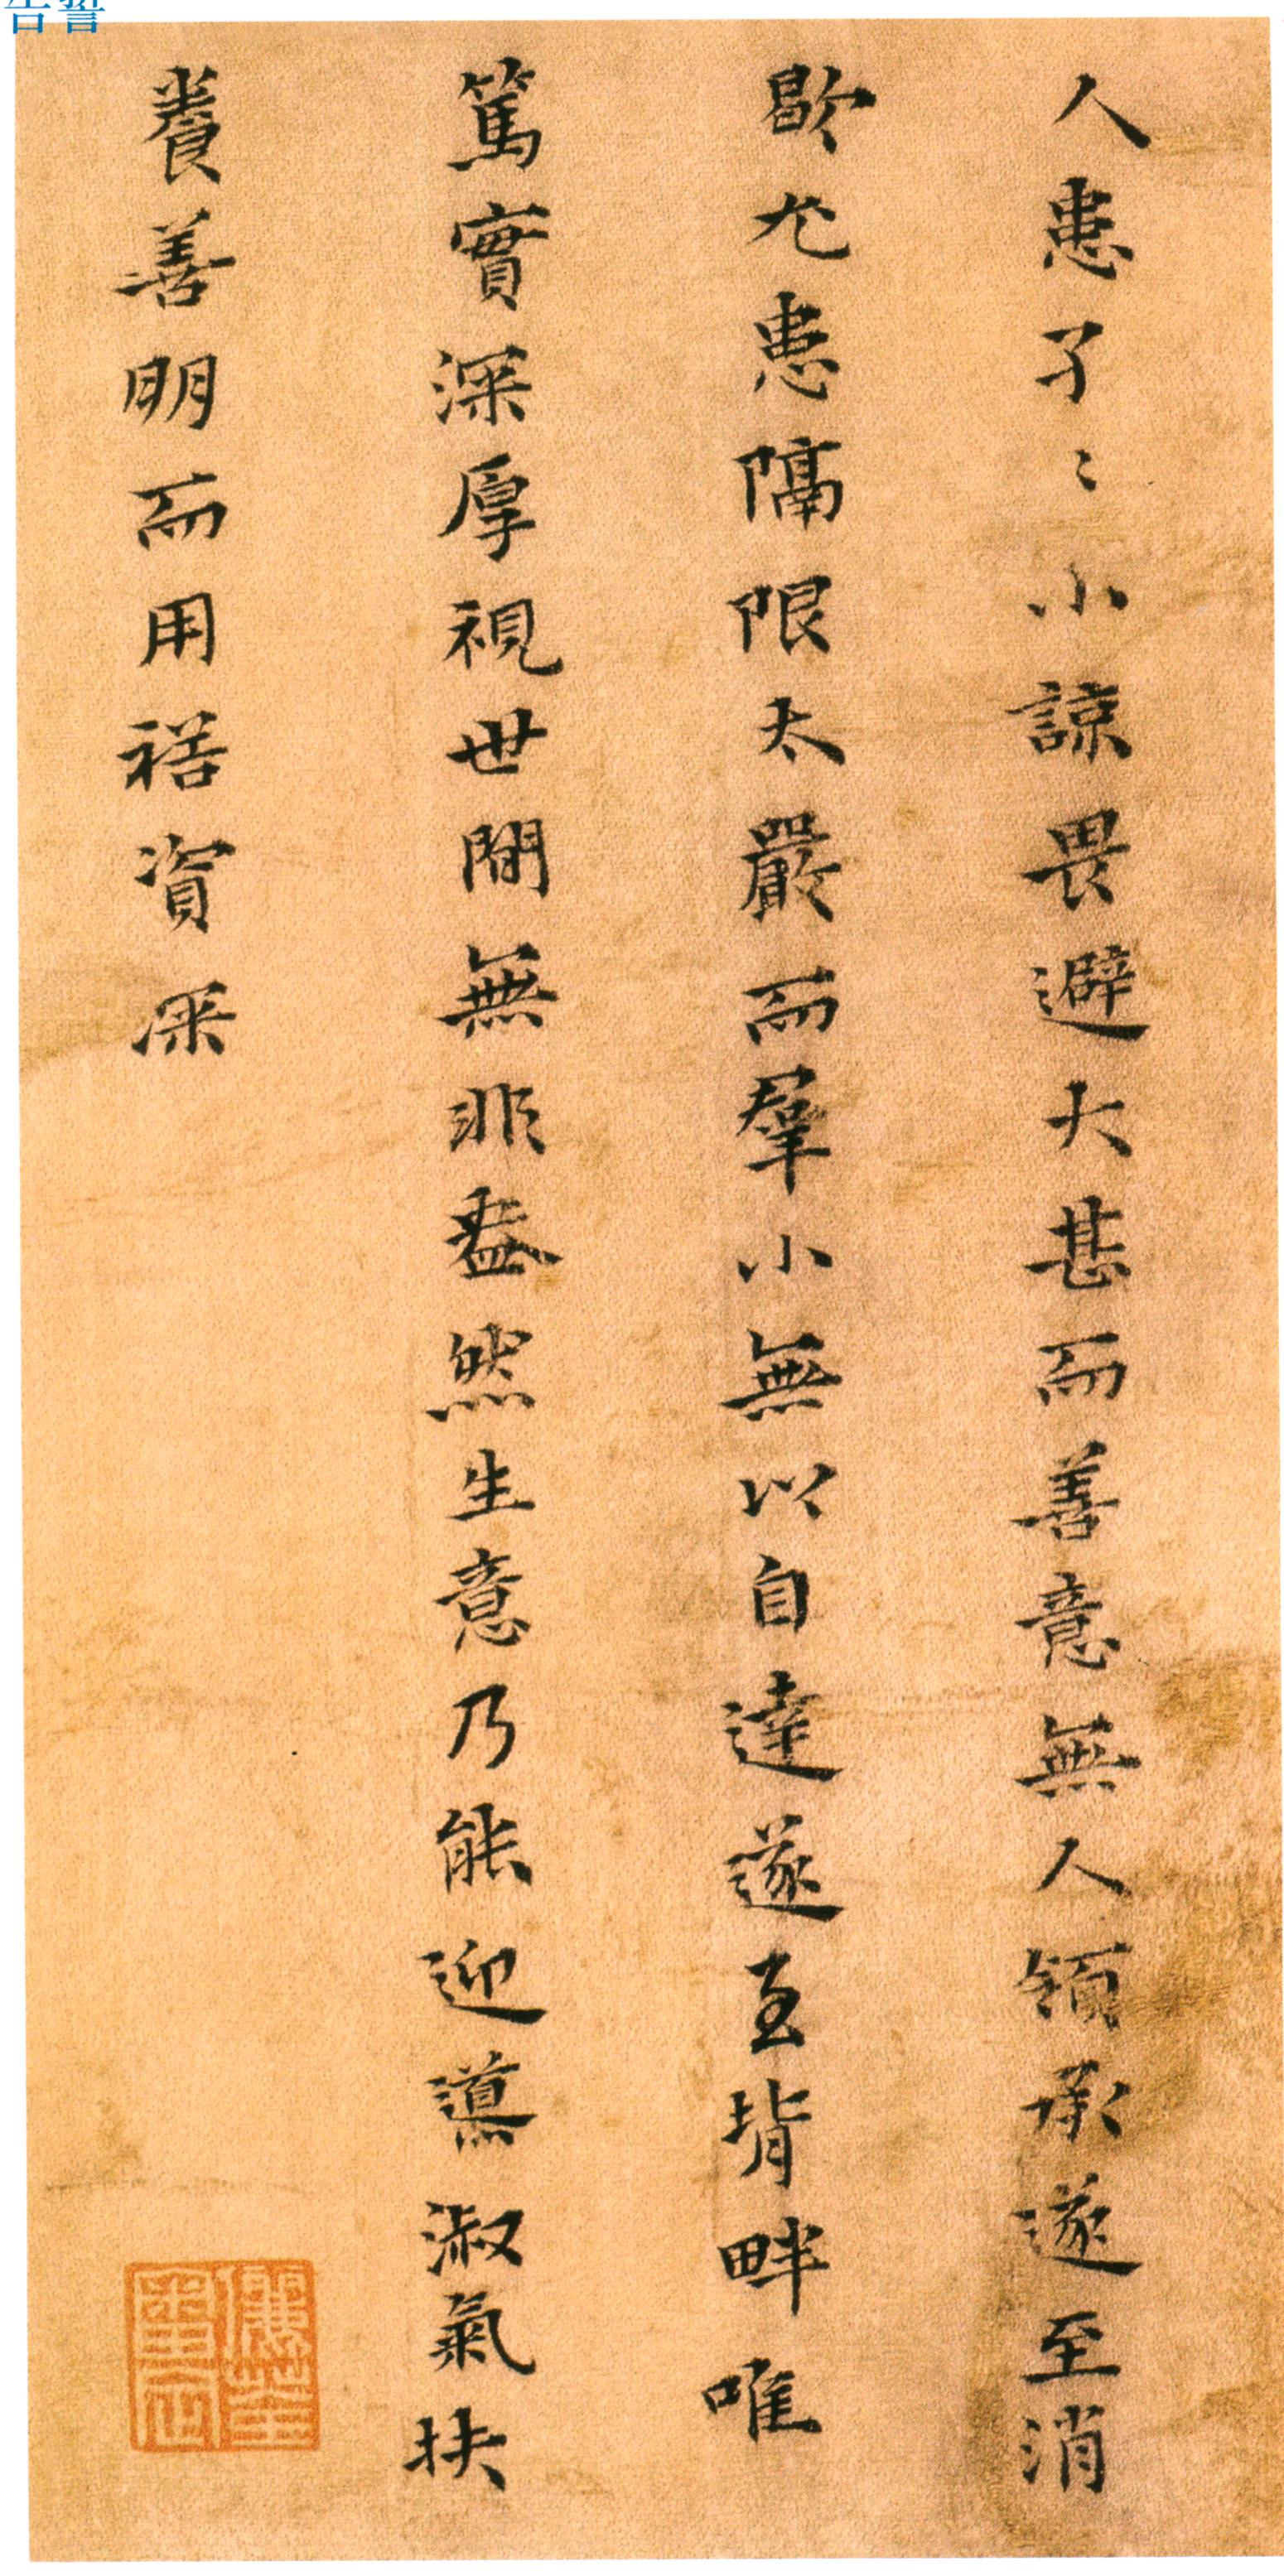 人患孑〻小諒畏避大甚而善意無人領承遂至消
歇尤患隔限太嚴而羣小無以自達遂至背畔唯
篤實深厚視世間無非盎然生意乃能迎導淑氣扶
養善明而用福資深